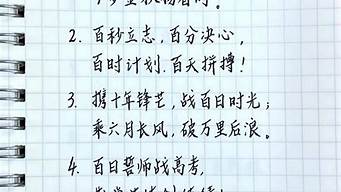 2. 百秒立志,百分决心,
百时计划.百天拼搏!
3. 携十年锋芒,战百日时光;
乘六月长风,破万里后浪。
4. 百日誓师战高考,